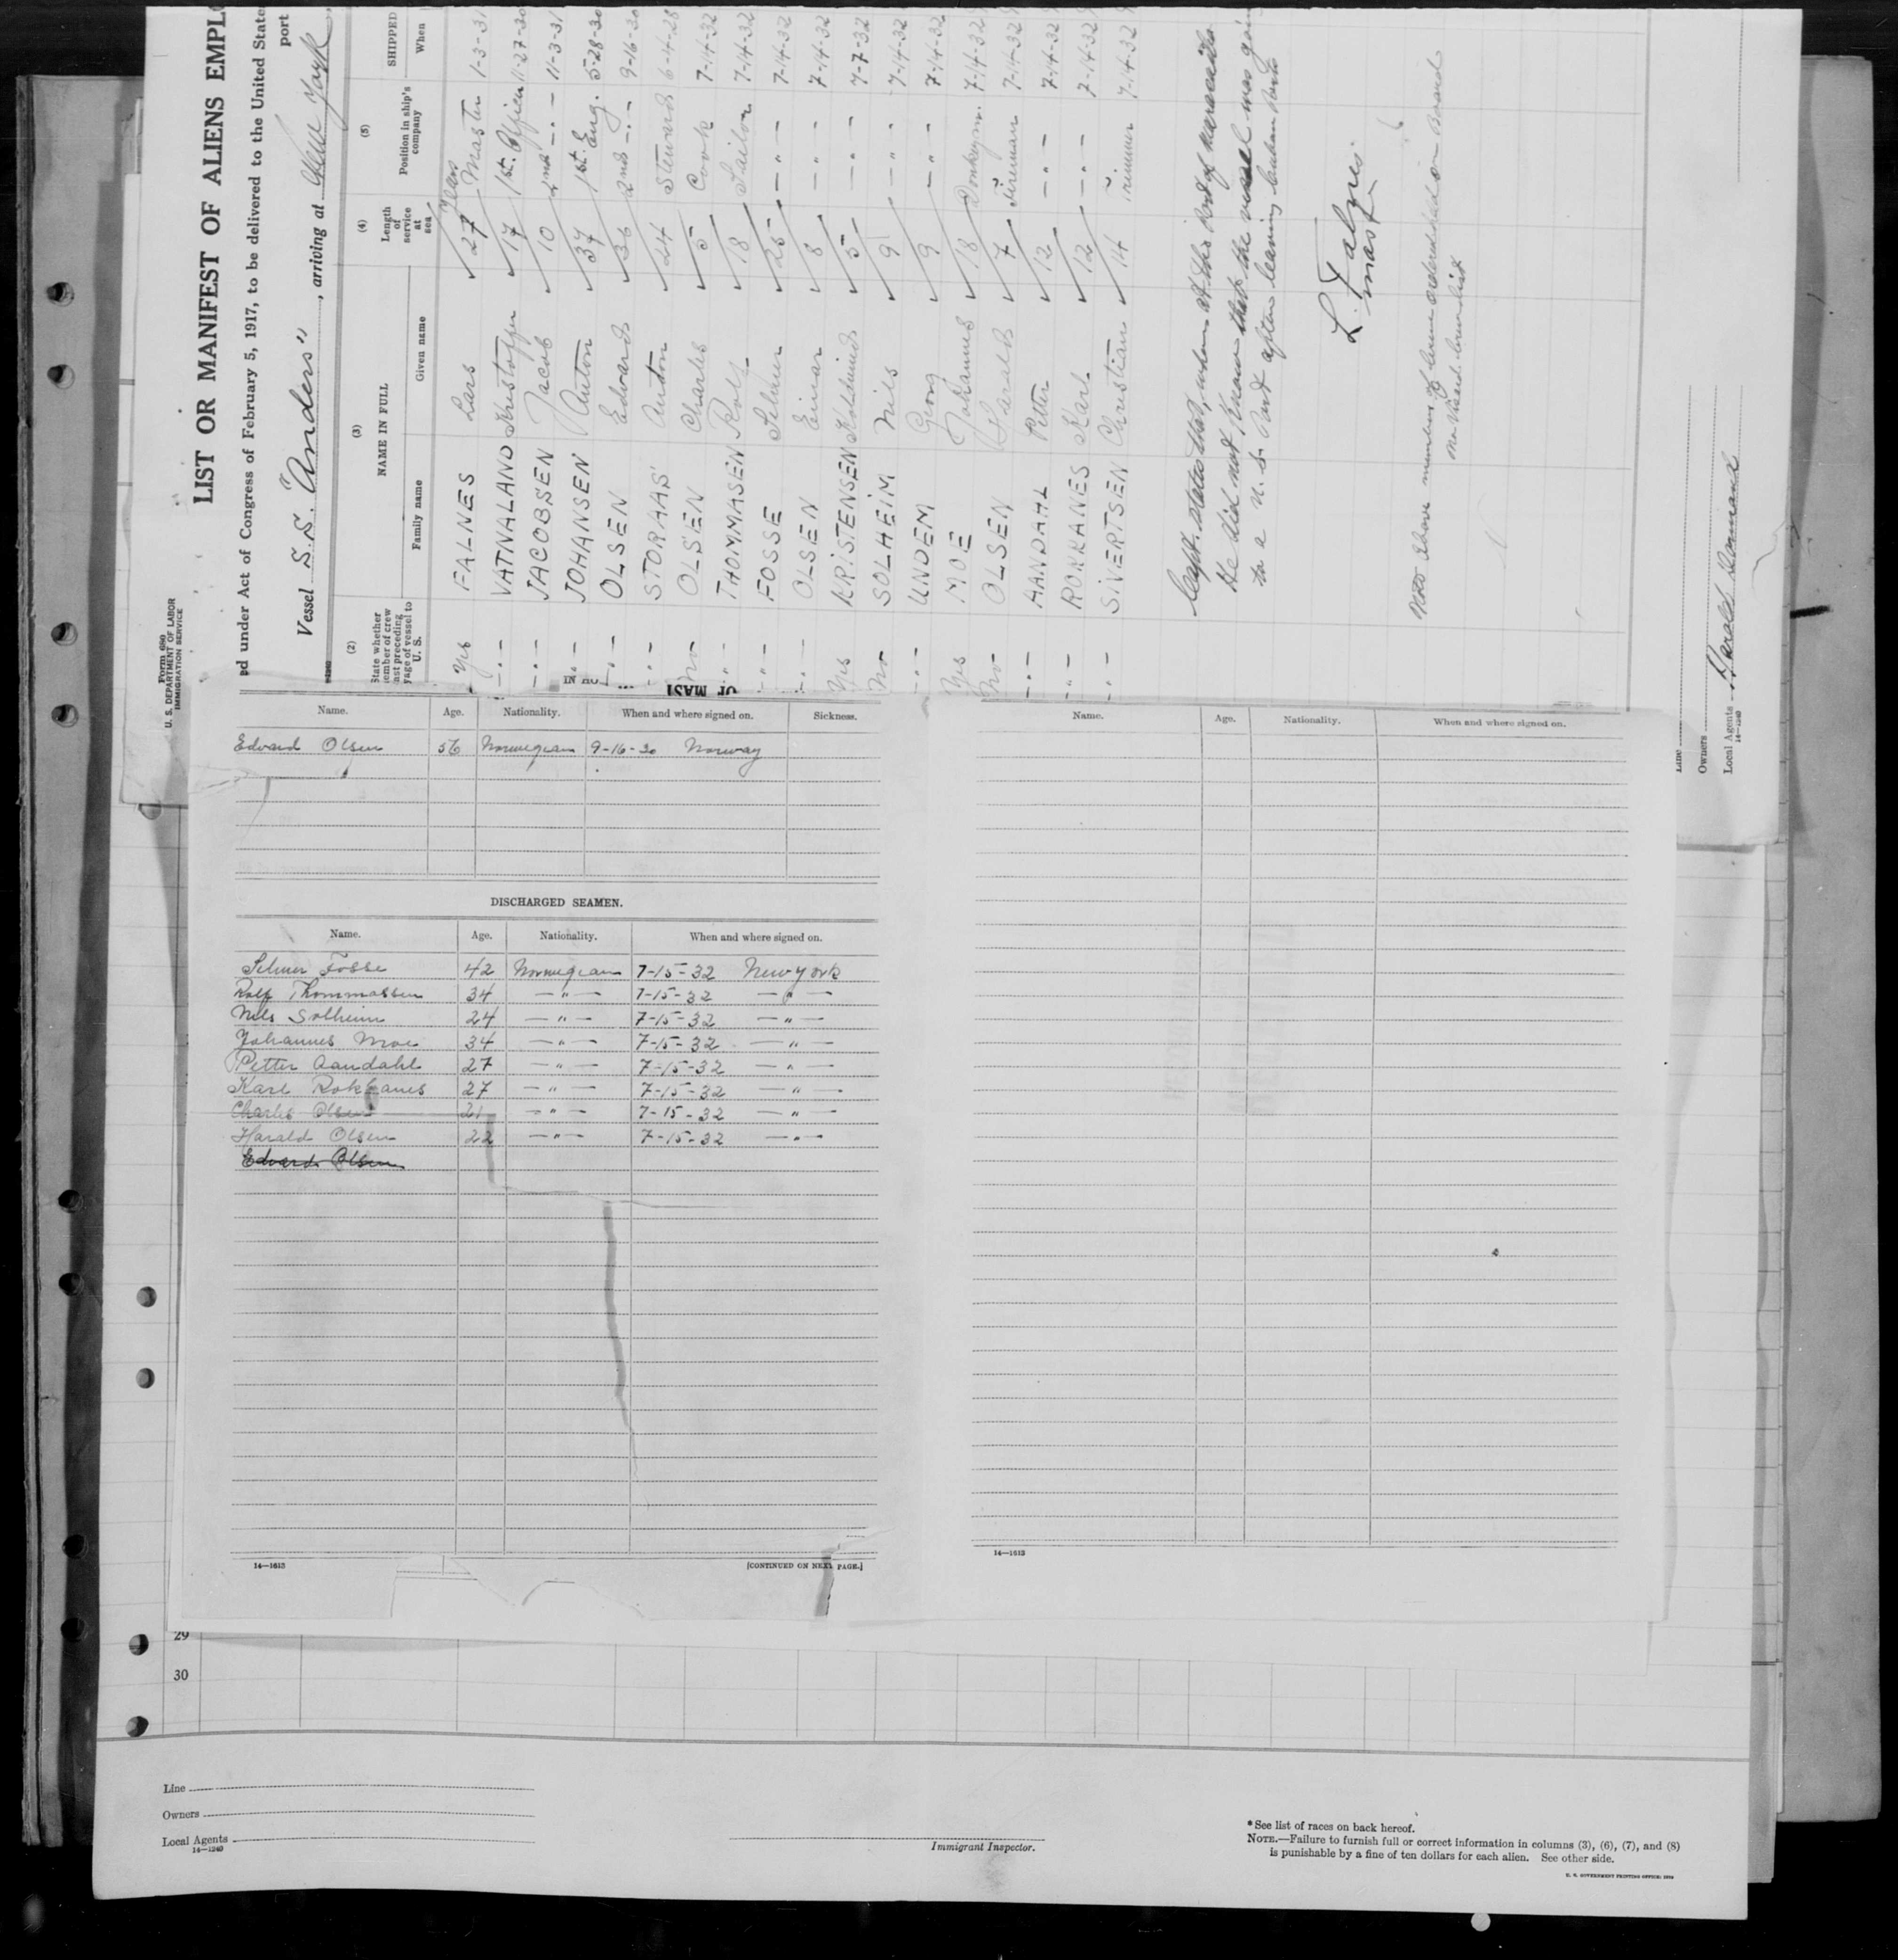 Form 680
U. S. DEPARTMENT OF LABOR
IMMIGRATION SERVICE
LIST OR MANIFEST OF ALIENS EMPL
ed under Act of Congress of February 5, 1917, to be delivered to the United State
port
Vessel S.S. "Anders", arriving at New York
(2) (3) (4) (5)
State whether member of crew last preceding voyage of vessel to U. S.
NAME IN FULL
Family name Given name
Length of service at sea
Position in ship's company
SHIPPED
When
Yes FALNES Lars 27 years Master 1-3-31
-"- VATNALAND Kristoffer 17 1st. Officer 11-27-30
-"- JACOBSEN Jacob 10 2nd -"- 11-3-31
-"- JOHANSEN Anton 37 1st. Eng. 5-28-30
-"- OLSEN Edvard 36 2nd -"- 9-16-30
-"- STORAAS Anton 24 Steward 6-14-28
No OLSEN Charles 5 Cook 7-14-32
-"- THOMMASEN Rolf 18 Sailor 7-14-32
-"- FOSSE Selmer 25 -"- 7-14-32
-"- OLSEN Einar 8 -"- 7-14-32
Yes KRISTENSEN Kolbeins 5 -"- 7-7-32
No SOLHEIM Nils 9 -"- 7-14-32
-"- UNDEM Georg 9 -"- 7-14-32
Yes MOE Johannes 18 Donkeym. 7-14-32
No OLSEN Harald 7 Fireman 7-14-32
-"- AANDAHL Petter 12 -"- 7-14-32
-"- ROKKANES Karl 12 -"- 7-14-32
-"- SIVERTSEN Christian 14 Trimmer 7-14-32
Capt. states that, when at this Port of
He did not know that the vessel was goin
to a U.S. Port after leaving Cuban Ports
L. Falnes
master
Note above members of crew ordered held on Board
No Visaed crew list
Line
Owners
Local Agents Harald
14—1240
Name. Age. Nationality. When and where signed on. Sickness.
Edvard Olsen 56 Norwegian 9-16-30 Norway
DISCHARGED SEAMEN.
Name. Age. Nationality. When and where signed on.
Selmer Fosse 42 Norwegian 7-15-32 New York
Rolf Thommassen 34 -"- 7-15-32 -"-
Nils Solheim 24 -"- 7-15-32 -"-
Johannes Moe 34 -"- 7-15-32 -"-
Petter Aandahl 27 -"- 7-15-32 -"-
Karl Rokkanes 27 -"- 7-15-32 -"-
Charles Olsen 21 -"- 7-15-32 -"-
Harald Olsen 22 -"- 7-15-32 -"-
Edvard Olsen
14—1613 [CONTINUED ON NEXT PAGE.]
Name. Age. Nationality. When and where signed on.
14—1613
29
30
Line
Owners
Local Agents
14—1240
Immigrant Inspector.
*See list of races on back hereof.
NOTE.—Failure to furnish full or correct information in columns (3), (6), (7), and (8)
is punishable by a fine of ten dollars for each alien. See other side.
U. S. GOVERNMENT PRINTING OFFICE: